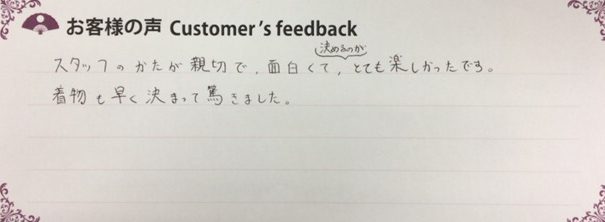 お客様の声 Customer's feedback
決めるのが
スタッフのかたが親切で、面白くて、とても楽しかったです。
着物も早く決まって驚きました。